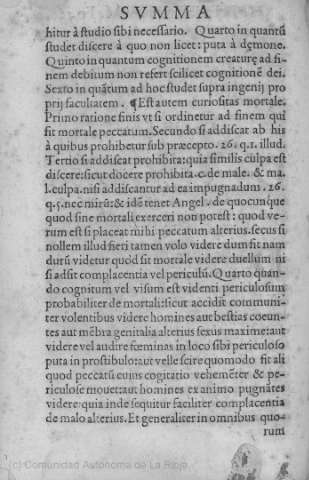 SVMMA
hitur à studio sibi necessario. Quarto in quantũ
studet discere à quo non licet: puta à dęmone.
Quinto in quantum cognitionem creaturę ad fi-
nem debitum non refert scilicet cognitionē dei.
Sexto in quãtum ad hoc studet supra ingenij pro
prij facultatem. ¶ Est autem curiositas mortale.
Primo ratione finis vt si ordinetur ad finem qui
sit mortale peccatum. Secundo si addiscat ab his
à quibus prohibetur sub præcepto. 26. q. 1. illud.
Tertio si addiscat prohibita: quia similis culpa est
discere: sicut docere prohibita. c. de male. & ma
l. culpa. nisi addiscantur ad ea impugnadum. 26.
q. 5. nec mirũ: & idē tenet Angel. de quocunque
quod sine mortali exerceri non potest: quod ve-
rum est si placeat mihi peccatum alterius. secus si
nollem illud fieri tamen volo videre dum fit nam
durũ videtur quòd sit mortale videre duellum ni
si adsit complacentia vel periculũ. Quarto quan-
do cognitum vel visum est videnti periculosum
probabiliter de mortali: sicut accidit communi-
ter volentibus videre homines aut bestias coeun-
tes aut mēbra genitalia alterius sexus maxime: aut
videre vel audire fœminas in loco sibi periculoso
puta in prostibulo: aut velle scire quomodo fit ali
quod peccatũ cuius cogitatio vehemēter & pe-
riculose mouet: aut homines ex animo pugnātes
videre: quia inde sequitur faciliter complacentia
de malo alterius. Et generaliter in omnibus quo-
rum
(c) Comunidad Autónoma de La Rioja